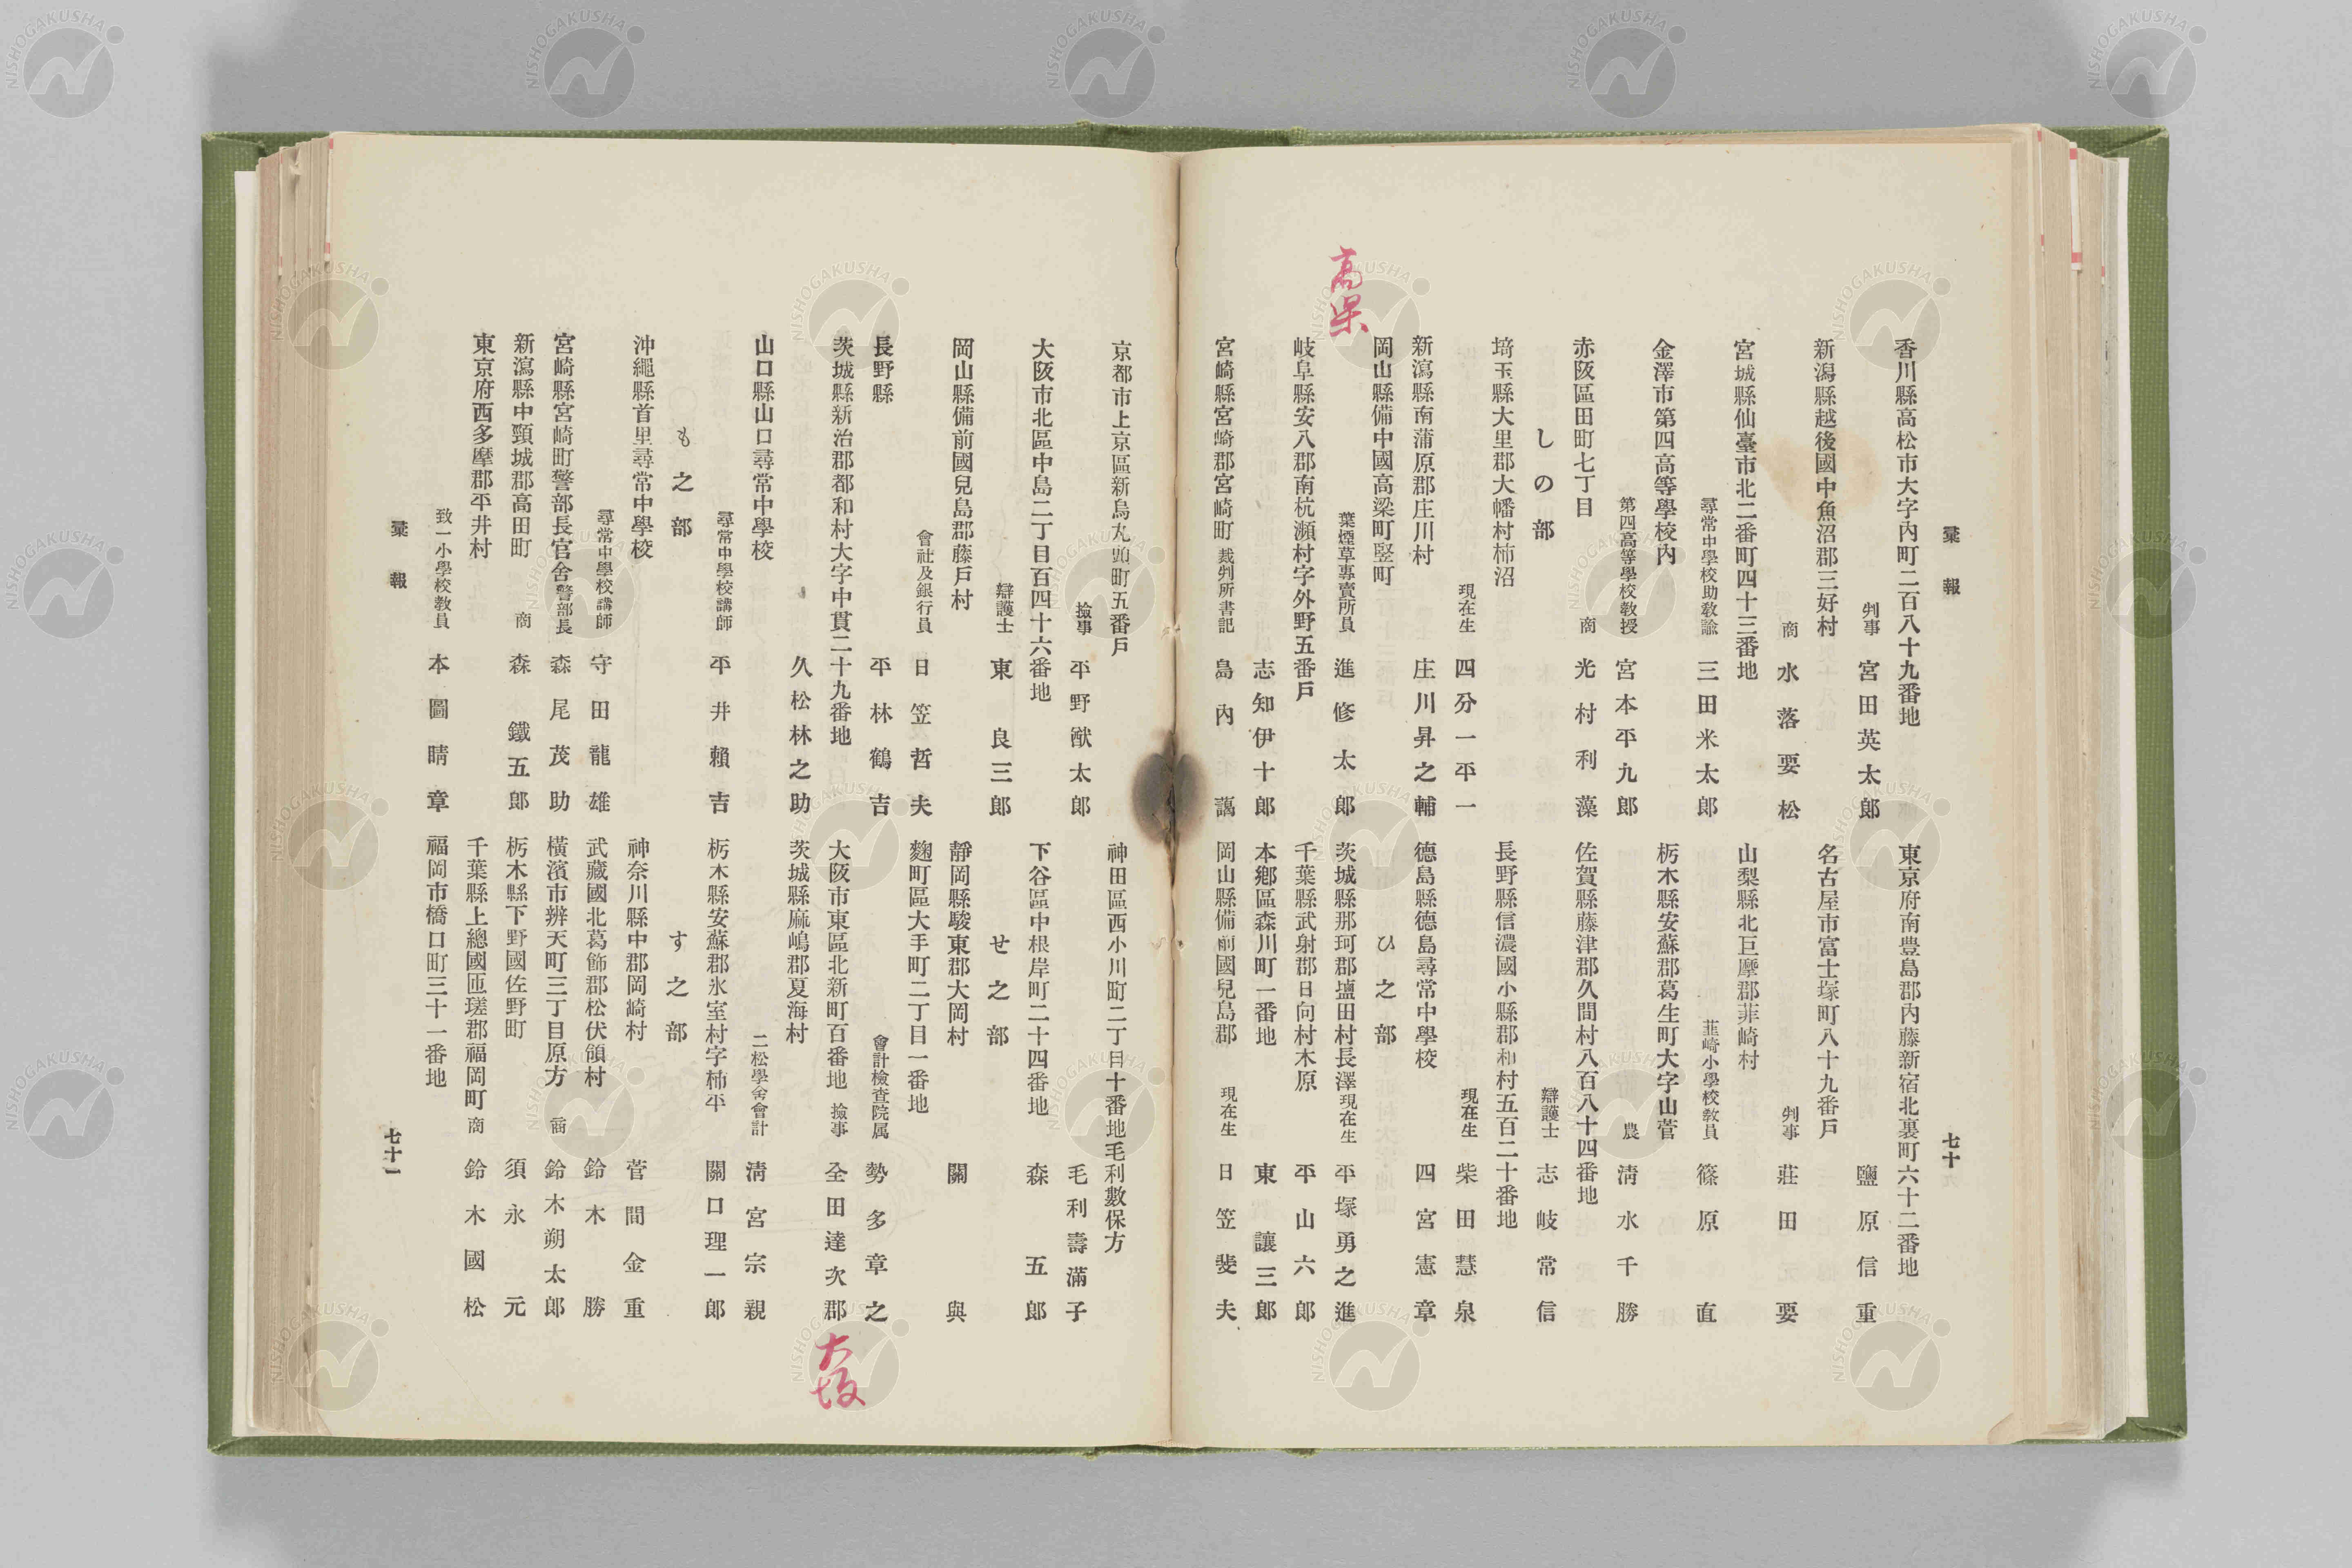 彙報
七十
香川縣高松市大字內町二百八十九番地
判事 宮田英太郎
新潟縣越後國中魚沼郡三好村
商 水落要松
宮城縣仙臺市北二番町四十三番地
尋常中學校助敎諭 三田米太郎
金澤市第四高等學校內
第四高等學校敎授 宮本平九郎
赤阪區田町七丁目
商 光村利藻
しの部
埼玉縣大里郡大幡村柿沼
現在生 四分一平一
新瀉縣南蒲原郡庄川村
庄川昇之輔
岡山縣備中國高梁町竪町
葉煙草專賣所員 進修太郎
岐阜縣安八郡南杭瀬村字外野五番戶
志知伊十郎
宮崎縣宮崎郡宮崎町 裁判所書記 島內
東京府南豊島郡內藤新宿北裏町六十二番地
鹽原信重
名古屋市富士塚町八十九番戶
判事 莊田要
山梨縣北巨摩郡菲崎村
韮崎小學校敎員 篠原直
栃木縣安蘇郡葛生町大字山菅
農 淸水千勝
佐賀縣藤津郡久間村八百八十四番地
辯護士 志岐常信
長野縣信濃國小縣郡和村五百二十番地
現在生 柴田慧泉
德島縣德島尋常中學校
四宮憲章
ひ之部
茨城縣那珂郡塩田村長澤 現在生 平塚勇之進
千葉縣武射郡日向村木原
平山六郎
本鄕區森川町一番地
東讓三郎
岡山縣備前國兒島郡 現在生 日笠斐夫
高梁
京都市上京區新烏丸頭町五番戶
撿事 平野猷太郎
大阪市北區中島二丁目百四十六番地
辯護士 東良三郎
岡山縣備前國兒島郡藤戶村
會社及銀行員 日笠哲夫
長野縣
平林鶴吉
茨城縣新治郡都和村大字中貫二十九番地
久松林之助
山口縣山口尋常中學校
尋常中學校講師 平井賴吉
も之部
沖繩縣首里尋常中學校
尋常中學校講師 守田龍雄
宮崎縣宮崎町警部長官舍 警部長 森尾茂助
新瀉縣中頸城郡高田町 商 森鐵五郎
東京府西多摩郡平井村
致一小學校敎員 本圖晴章
神田區西小川町二丁目十番地毛利數保方
毛利壽滿子
下谷區中根岸町二十四番地
森五郎
せ之部
靜岡縣駿東郡大岡村
關與
麴町區大手町二丁目一番地
會計檢査院属 勢多章之
大阪市東區北新町百番地 撿事 全田達次郡
茨城縣鹿嶋郡夏海村
二松學舍會計 淸宮宗親
栃木縣安蘇郡氷室村字柿平
關口理一郎
す之部
神奈川縣中郡岡崎村
菅間金重
武藏國北葛飾郡松伏領村
鈴木勝
橫濱市辨天町三丁目原方 商 鈴木朔太郎
栃木縣下野國佐野町
須永元
千葉縣上總國匝瑳郡福岡町 商 鈴木國松
福岡市橋口町三十一番地
彙報
七十一
大坂